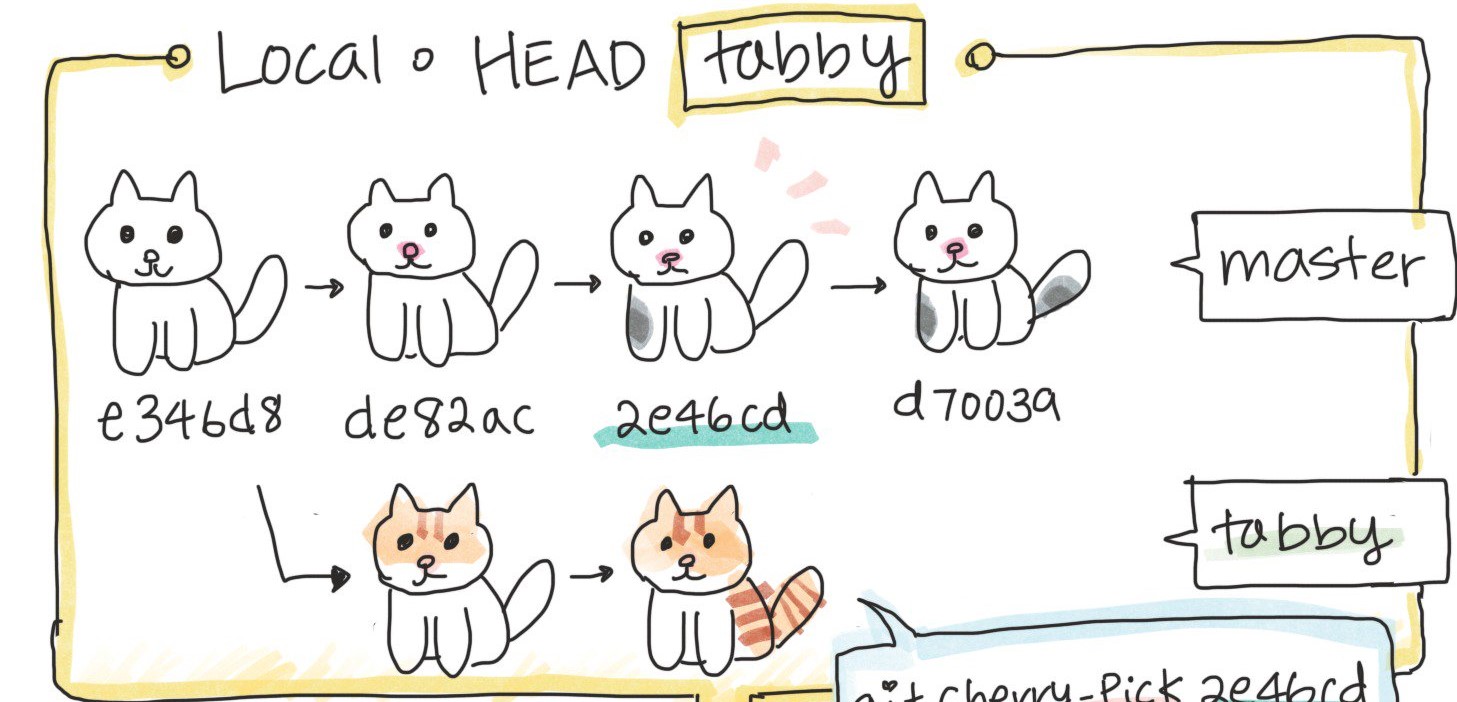 Local ∘ HEAD tabby
master
e346d8 de82ac 2e46cd d70039
tabby
git cherry-pick 2e46cd